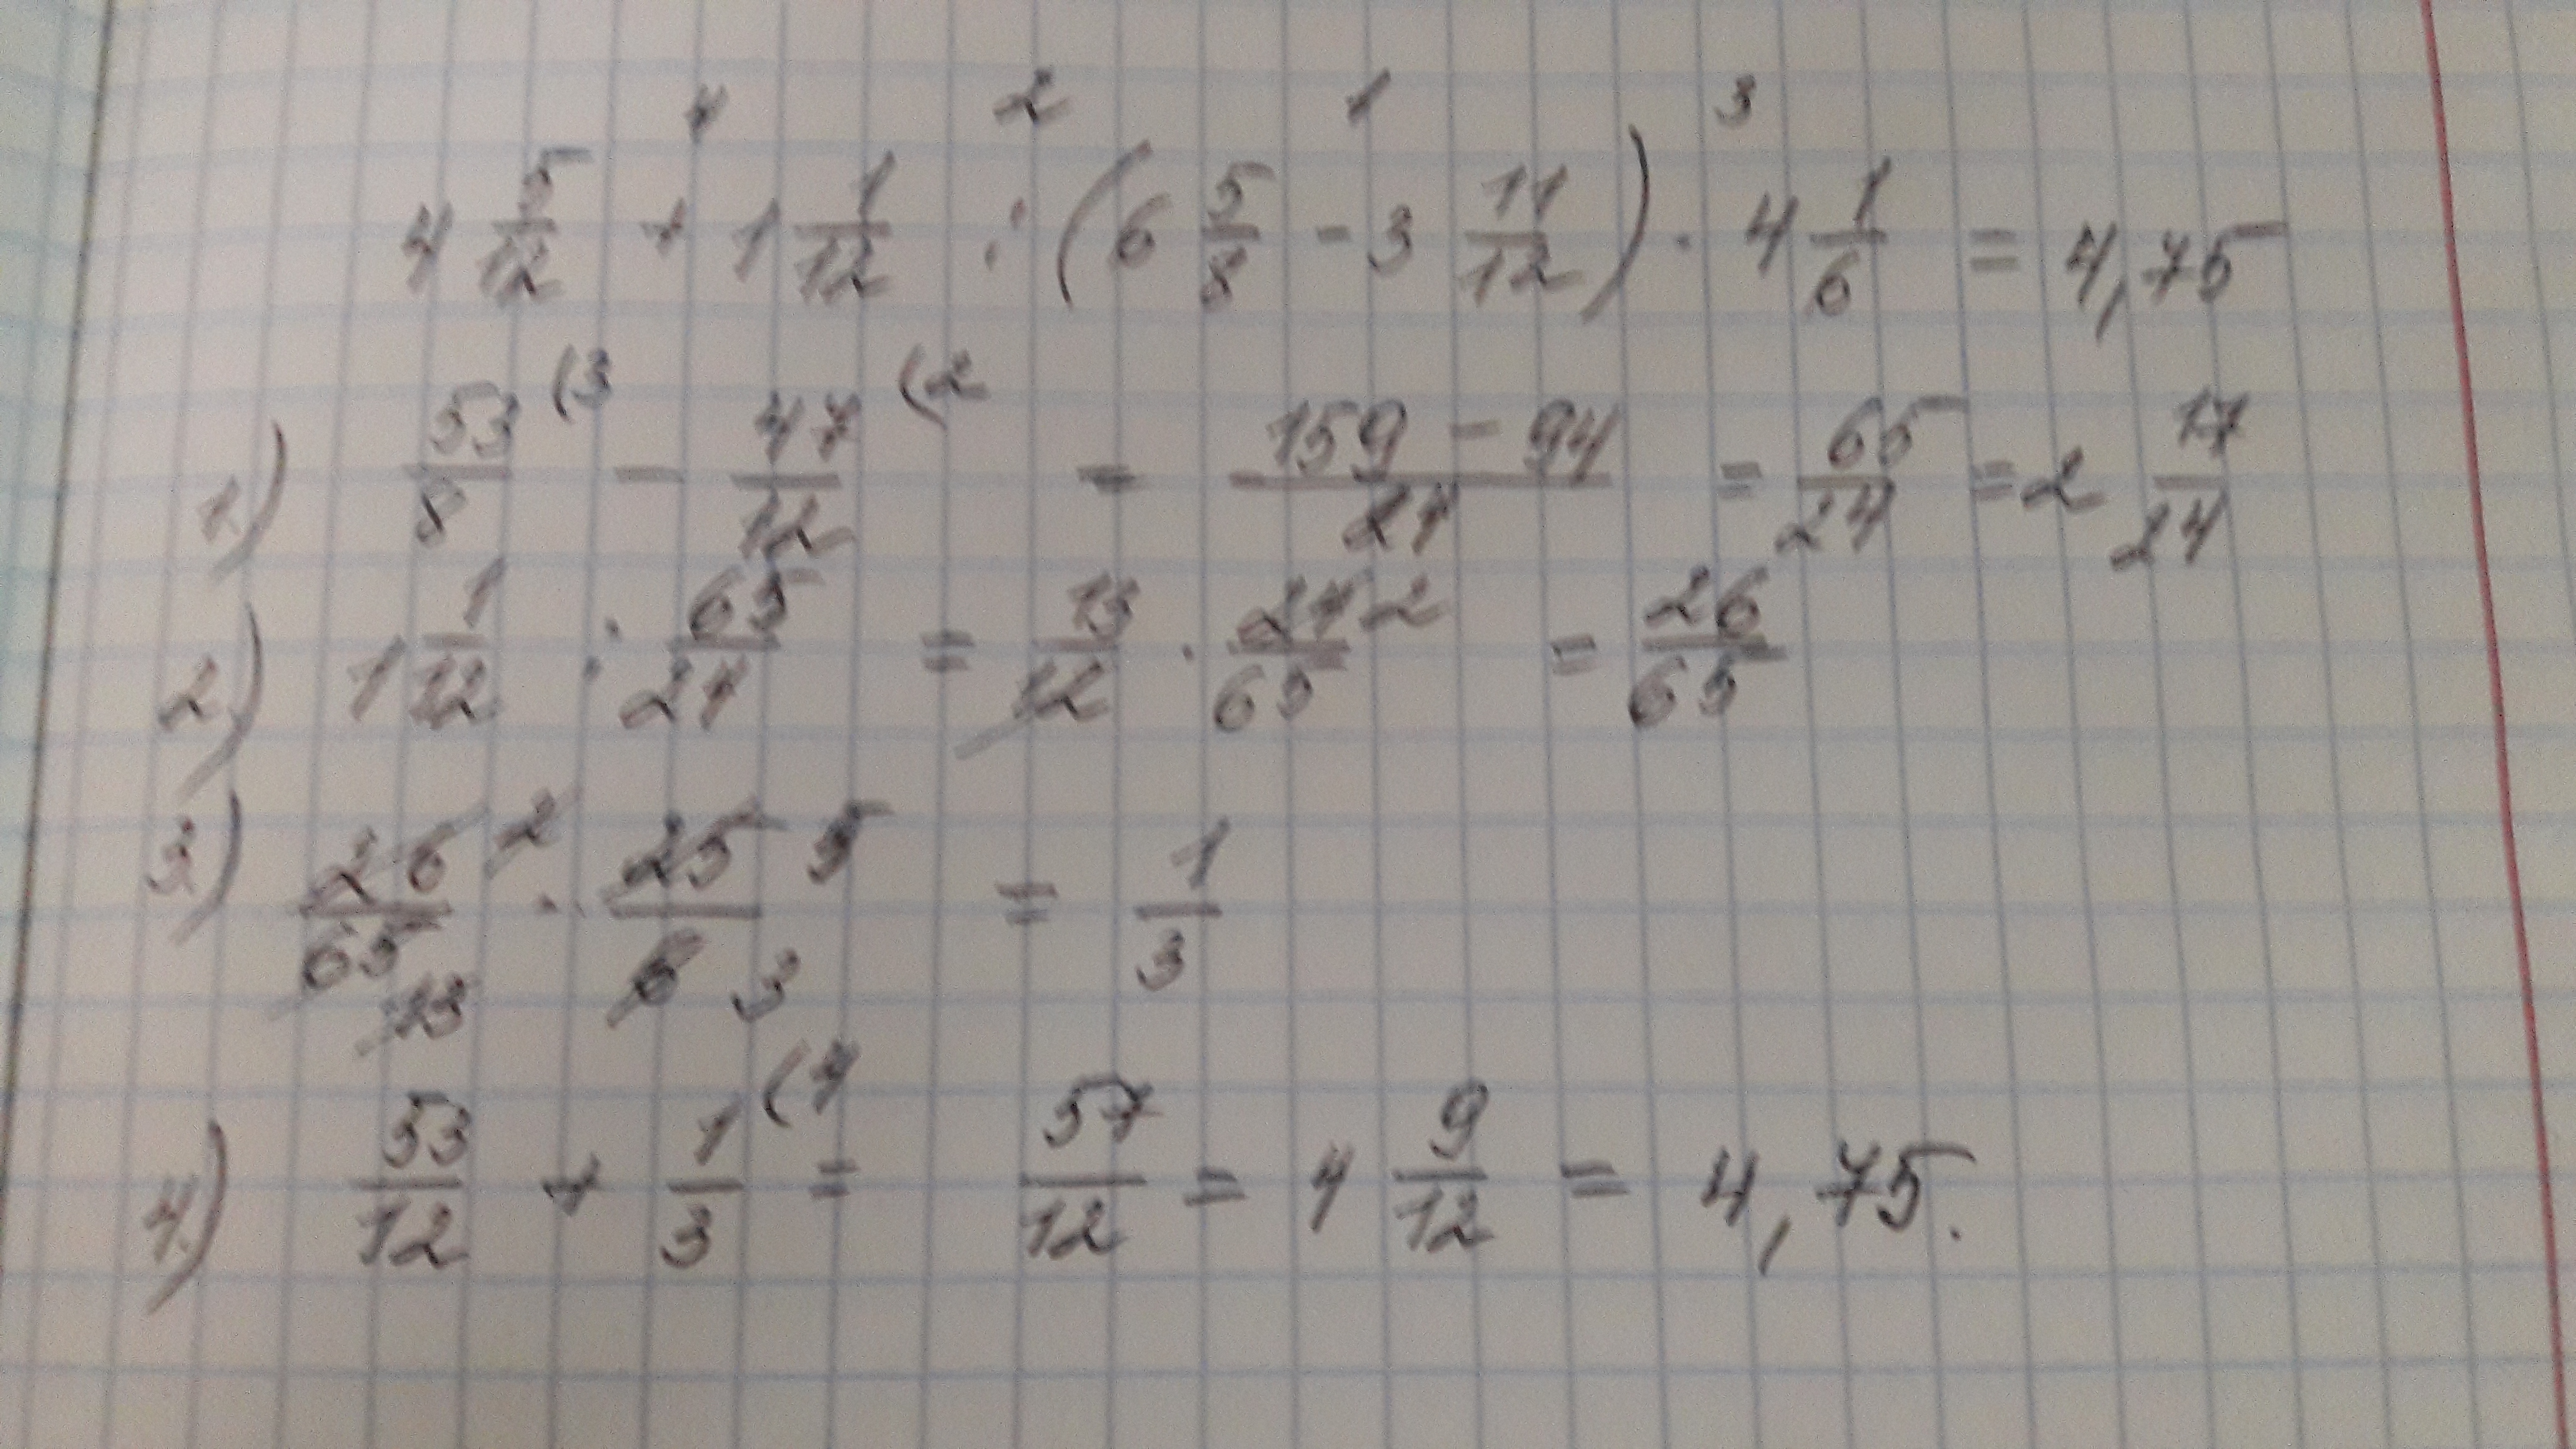 4 2 1 3
4 5/12 + 1 1/12 : (6 5/8 - 3 11/12) · 4 1/6 = 4,75
1.) 53/8 (3 - 47/12 (2 = 159 - 94/24 = 65/24 = 2 17/24
2.) 1 1/12 : 65/24 = 13/12 · 24/65 2 = 26/65
3.) 26/65 2 13 · 25/6 5 3 = 1/3
4.) 53/12 + 1/3 (4 = 57/12 = 4 9/12 = 4,75.